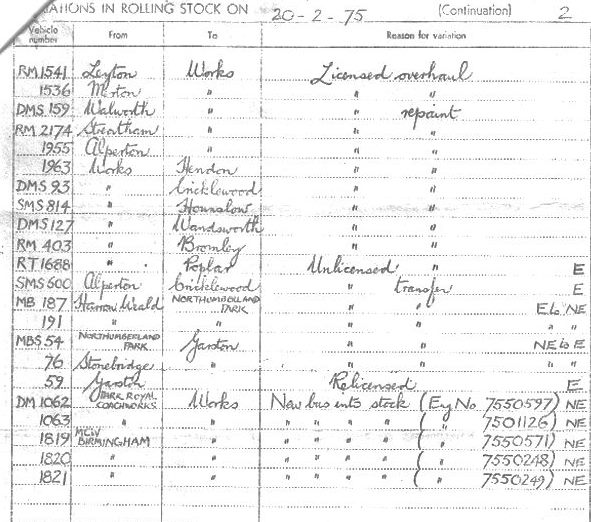 RIATIONS IN ROLLING STOCK ON 20-2-75 (Continuation) 2
Vehicle number From To Reason for variation
RM 1541 Leyton Works Licensed overhaul
1536 Merton " " "
DMS 159 Walworth " " repaint
RM 2174 Streatham " " "
1955 Alperton " " "
1963 Works Hendon " "
DMS 93 " Cricklewood " "
SMS 814 " Hounslow " "
DMS 127 " Wandsworth " "
RM 403 " Bromley " "
RT 1688 " Poplar Unlicensed " E
SMS 600 Alperton Cricklewood " transfer E
MB 187 Harrow Weald NORTHUMBERLAND PARK " " E to NE
191 " " " " " "
MBS 54 NORTHUMBERLAND PARK Garston " " NE to E
76 Stonebridge " " " " "
59 Garston Relicensed E
DM 1062 PARK ROYAL COACHWORKS Works New bus into stock (Eng No 7550597) NE
1063 " " " " " " ( " 7501126) NE
1819 MCW BIRMINGHAM " " " " " ( " 7550571) NE
1820 " " " " " " ( " 7550248) NE
1821 " " " " " " ( " 7550249) NE